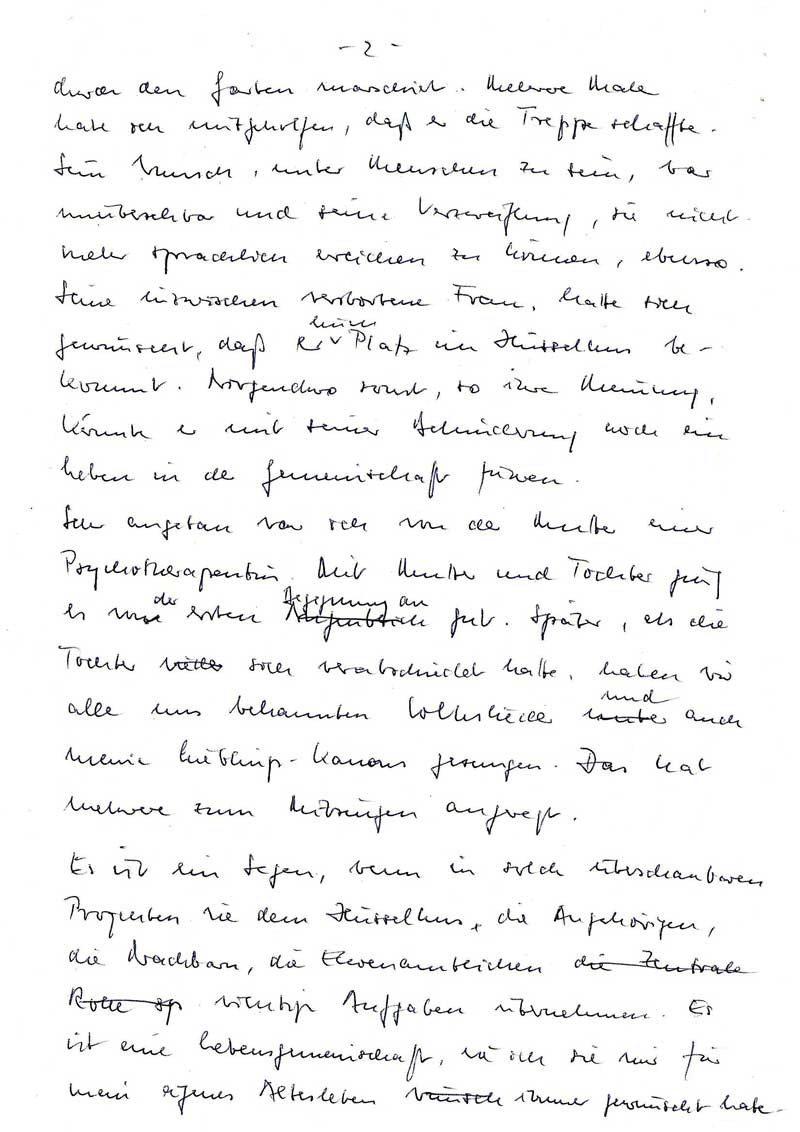 - 2 -
durch den Garten marschiert. Mehrere Male
habe ich mitgeholfen, daß er die Treppe schaffte.
Sein Wunsch, unter Menschen zu sein, war
unübersehbar und seine Verzweiflung, sie nicht
mehr sprachlich erreichen zu können, ebenso.
Seine inzwischen verstorbene Frau, hatte sich
gewünscht, daß er einen Platz im Hüsselhus be-
kommt. Nirgendwo sonst, so ihre Meinung,
könnte er mit seiner Behinderung noch ein
Leben in der Gemeinschaft führen.
Sehr angetan war ich von der Mutter einer
Psychotherapeutin. Mit Mutter und Tochter ging
es von der ersten Begegnung an gut. Später, als die
Tochter sich verabschiedet hatte, haben wir
alle uns bekannten Volkslieder und auch
meine Lieblings-Kanons gesungen. Das hat
mehrere zum Mitsingen angeregt.
Es ist ein Segen, wenn in solch überschaubaren
Projekten wie dem Hüsselhus, die Angehörigen,
die Nachbarn, die Ehrenamtlichen die Zentrale
Rolle wichtige Aufgaben übernehmen. Es
ist eine Lebensgemeinschaft, wie ich sie mir für
mein eigenes Altersleben wünsche immer gewünscht habe.